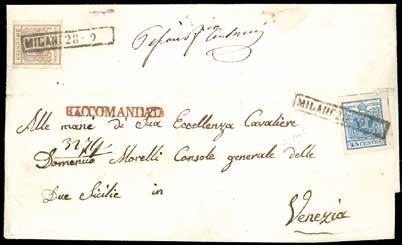 MILANO 28 2
RACCOMANDATA
MILANO
45 CENTES.
Alle mane di Sua Eccellenza Cavaliere
Domenico Morelli Console generale delle
Due Sicilie in
Venezia